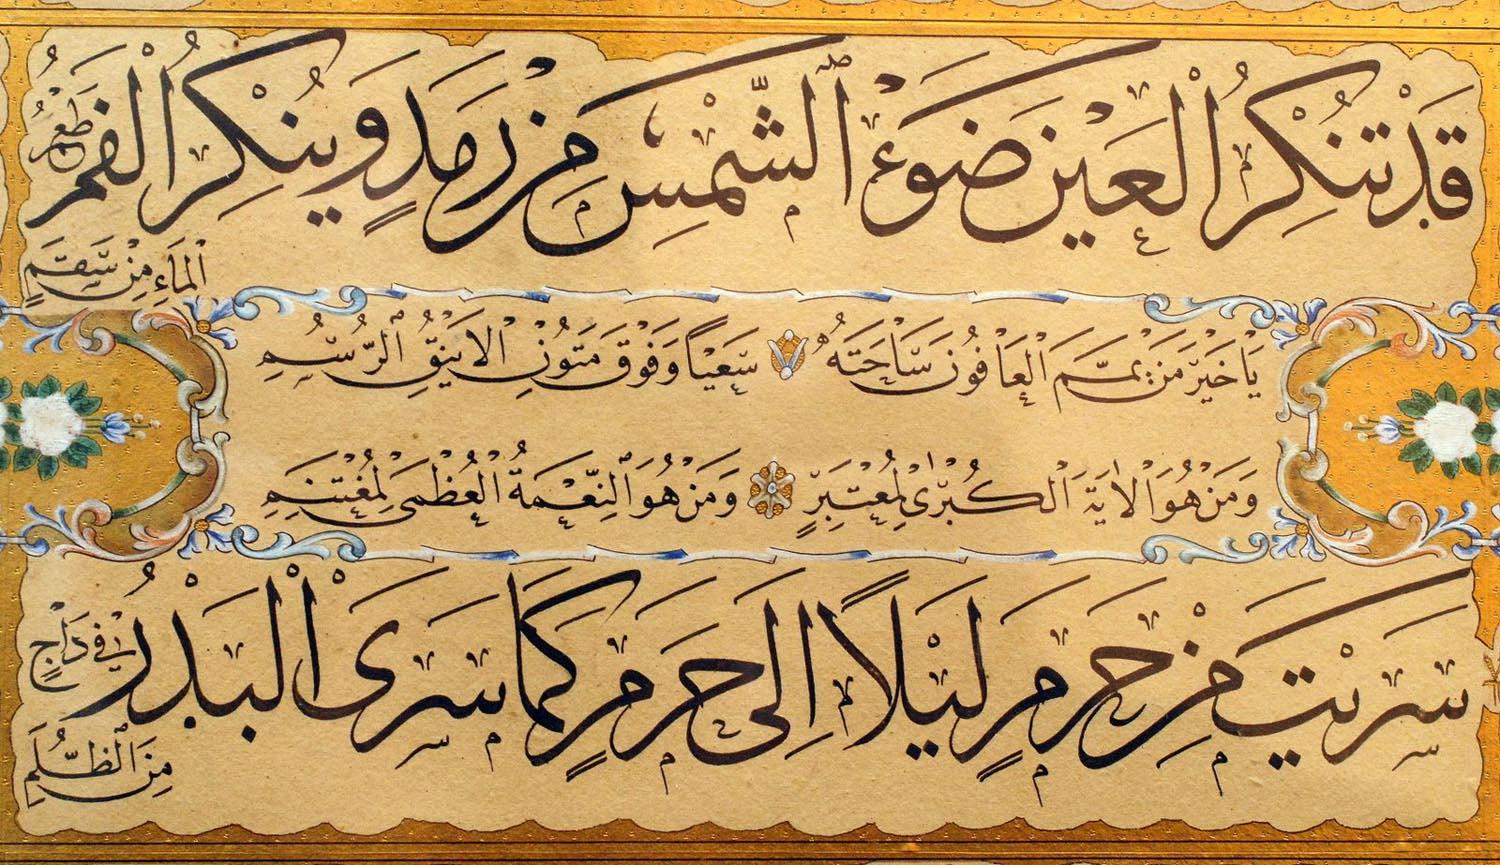 قَدْ تُنْكِرُ الْعَيْنُ ضَوْءَ ٱلشَّمْسِ مِنْ رَمَدٍ وَيُنْكِرُ الْفَمُ طَعْمَ
ٱلْمَاءِ مِنْ سَقَمٍ
يَا خَيْرَ مَنْ يَمَّمَ الْعَافُونَ سَاحَتَهُ سَعْيًا وَفَوْقَ مُتُونِ الْاَيْنُقِ ٱلرُّسُمِ
وَمَنْ هُوَ الْاٰيَةُ الْكُبْرٰى لِمُعْتَبِرٍ وَمَنْ هُوَ ٱلنِّعْمَةُ الْعُظْمٰى لِمُغْتَنِمِ
سَرَيْتَ مِنْ حَرَمٍ لَيْلًا اِلَى حَرَمٍ كَمَا سَرَى الْبَدْرُ فِي دَاجٍ
مِنَ ٱلظُّلَمِ